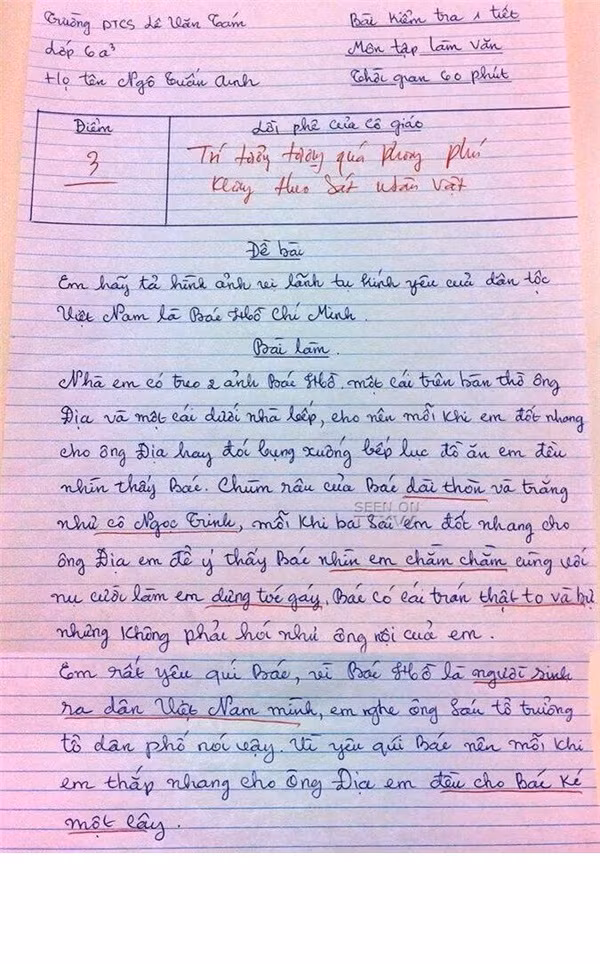 Trường PTCS Lê Văn Tám
Bài kiểm tra 1 tiết
Lớp 6a³
Môn tập làm văn
Họ tên Ngô Tuấn Anh
Thời gian 60 phút
Điểm
Lời phê của cô giáo
3
Trí tưởng tượng quá phong phú
Không theo sát nhân vật
Đề bài
Em hãy tả hình ảnh vị lãnh tụ kính yêu của dân tộc
Việt Nam là Bác Hồ Chí Minh.
Bài làm.
Nhà em có treo 2 ảnh Bác Hồ. một cái trên bàn thờ ông
Địa và một cái dưới nhà bếp, cho nên mỗi khi em đốt nhang
cho ông Địa hay đói bụng xuống bếp lục đồ ăn em đều
nhìn thấy Bác. Chùm râu của Bác dài thòn và trắng
như cô Ngọc Trinh, mỗi khi ba sai em đốt nhang cho
SEEN ON
ông Địa em để ý thấy Bác nhìn em chằm chằm cùng với
nụ cười làm em dựng tóc gáy, Bác có cái trán thật to và bự
nhưng không phải hói như ông nội của em.
Em rất yêu quí Bác, vì Bác Hồ là người sinh
ra dân Việt Nam mình, em nghe ông Sáu tổ trưởng
tổ dân phố nói vậy. Vì yêu quúi Bác nên mỗi khi
em thắp nhang cho Ông Địa em đều cho Bác ké
một cây.